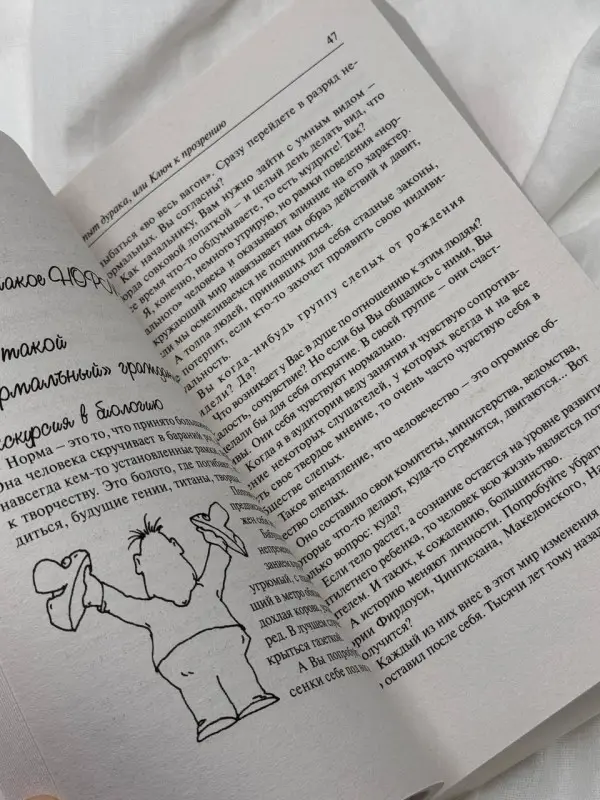 такое
такой
гражд
экскурсия в биологию
Норма – это то, что принято
Она человека скручивает в бараний
навсегда кем-то установленные рамки
к творчеству. Это болото, где погибают
диться, будущие гении, титаны, творцы
непремен
занием
угрюмый, с
щий в метро
дохлая корова
ред. В лучшем
крыться газетой
А Вы попробуй
сенки себе под
47
дурака, или Ключ к прозрению
ыбаться «во весь вагон». Сразу перейдете в разряд не-
ормальных. Вы согласны?
Как начальнику, Вам нужно зайти с умным видом –
морда совковой лопаткой – и целый день делать вид, что
все время что-то обдумываете, то есть мудрите! Так?
Я, конечно, немного утрирую, но рамки поведения «нор-
мального» человека и оказывают влияние на его характер.
кружающий мир навязывает нам образ действий и давит,
ели мы осмеливаемся не подчиниться.
А толпа людей, принявших для себя стадные законы,
потерпит, если кто-то захочет проявить свою индиви-
альность.
Вы когда-нибудь группу слепых от рождения
идели? Да?
Что возникает у Вас в душе по отношению к этим людям?
алость, сочувствие? Но если бы Вы общались с ними, Вы
делали бы для себя открытие. В своей группе – они счаст-
Они себя чувствуют нормально.
Когда я в аудитории веду занятия и чувствую сопротив-
ение некоторых слушателей, у которых всегда и на все
свое твердое мнение, то очень часто чувствую себя в
ществе слепых.
Такое впечатление, что человечество – это огромное об-
ество слепых.
Оно составило свои комитеты, министерства, ведомства,
орые что-то делают, куда-то стремятся, двигаются... Вот
олько вопрос: куда?
Если тело растет, а сознание остается на уровне
илетнего ребенка, то человек всю жизнь является
телем. И таких, к сожалению, большинство.
А историю меняют личности. Попробуйте убрать
ории Фирдоуси, Чингисхана, Македонского,
олучится?
Каждый из них внес в этот мир изменения
о оставил после себя. Тысячи лет тому назад